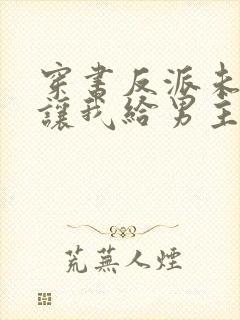 穿書反派未
讓我給男主
荒蕪人煙